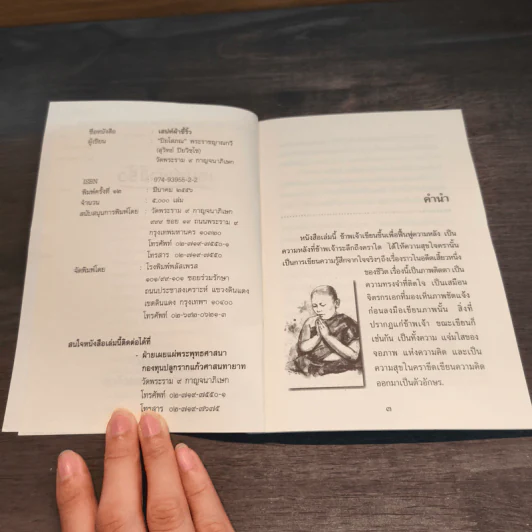 ชื่อหนังสือ เสน่ห์ผ้าขี้ริ้ว
ผู้เขียน "ปิยโสภณ" พระราชญาณกวี
(สุวิทย์ ปิยวิชฺโช)
วัดพระราม ๙ กาญจนาภิเษก
ISBN 974-93966-2-2
พิมพ์ครั้งที่ ๑๒ มีนาคม ๒๕๕๖
จำนวน ๕,๐๐๐ เล่ม
สนับสนุนการพิมพ์โดย วัดพระราม ๙ กาญจนาภิเษก
๙๙๙ ซอย ๑๙ ถนนพระราม ๙
กรุงเทพมหานคร ๑๐๓๒๐
โทรศัพท์ ๐๒-๗๑๙-๗๕๕๐-๑
โทรสาร ๐๒-๗๑๙-๗๕๕๐
จัดพิมพ์โดย โรงพิมพ์พลัสเพรส
๑๐๑/๙๙-๑๐๑ ซอยร่วมรักษา
ถนนประชาสงเคราะห์ แขวงดินแดง
เขตดินแดง กรุงเทพฯ ๑๐๔๐๐
โทรศัพท์ ๐๒-๖๙๒-๐๖๒๑-๓
สนใจหนังสือเล่มนี้ติดต่อได้ที่
- ฝ่ายเผยแผ่พระพุทธศาสนา
กองทุนปลูกรากแก้วศาสนทายาท
วัดพระราม ๙ กาญจนาภิเษก
โทรศัพท์ ๐๒-๗๑๙-๗๕๕๐-๑
โทรสาร ๐๒-๗๑๙-๗๖๗๕
คำนำ
หนังสือเล่มนี้ ข้าพเจ้าเขียนขึ้นเพื่อฟื้นฟูความหลัง เป็น
ความหลังที่ข้าพเจ้าระลึกถึงคราใด ได้ให้ความสุขใจครานั้น
เป็นการเขียนความรู้สึกจากใจจริงๆถึงเรื่องราวในอดีตเสี้ยวหนึ่ง
ของชีวิต เรื่องนี้เป็นภาพติดตา เป็น
ความทรงจำที่ติดใจ เป็นเสมือน
จิตรกรเอกที่มองเห็นภาพชัดแจ้ง
ก่อนลงมือเขียนภาพนั้น สิ่งที่
ปรากฏแก่ข้าพเจ้า ขณะเขียนก็
เช่นกัน เป็นทั้งความ แจ่มใสของ
จอภาพ แห่งความคิด และเป็น
ความสุขในคราขีดเขียนความคิด
ออกมาเป็นตัวอักษร.
๓